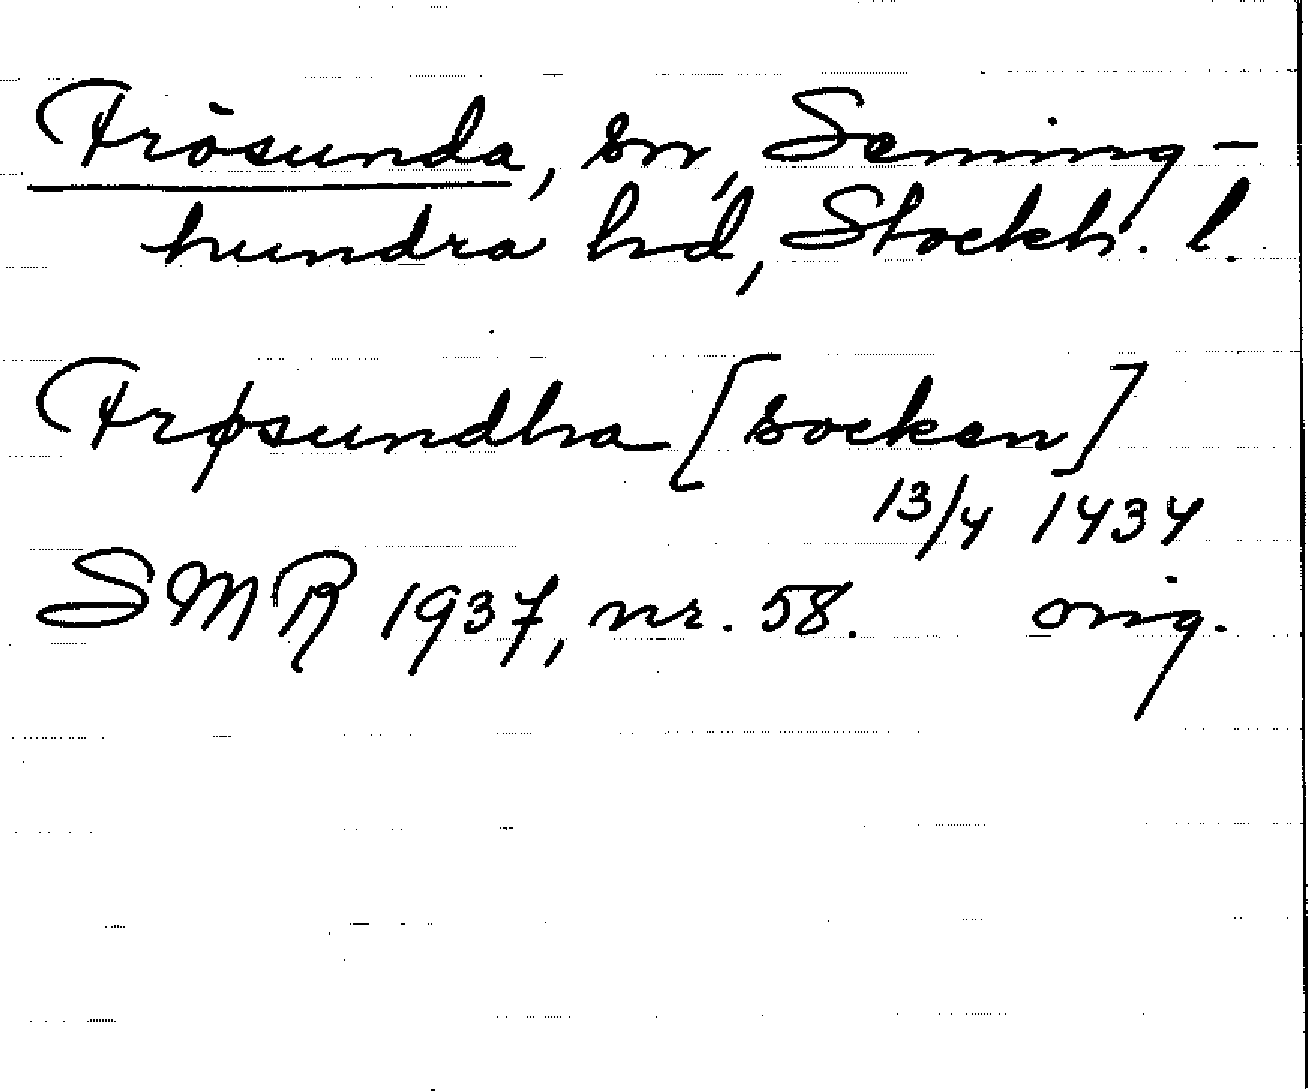 Frösunda, sn, Seming-
hundra hd, Stockh. l.
Frøsundha [socken]
13/4 1434
SMR 1937, nr. 58. orig.